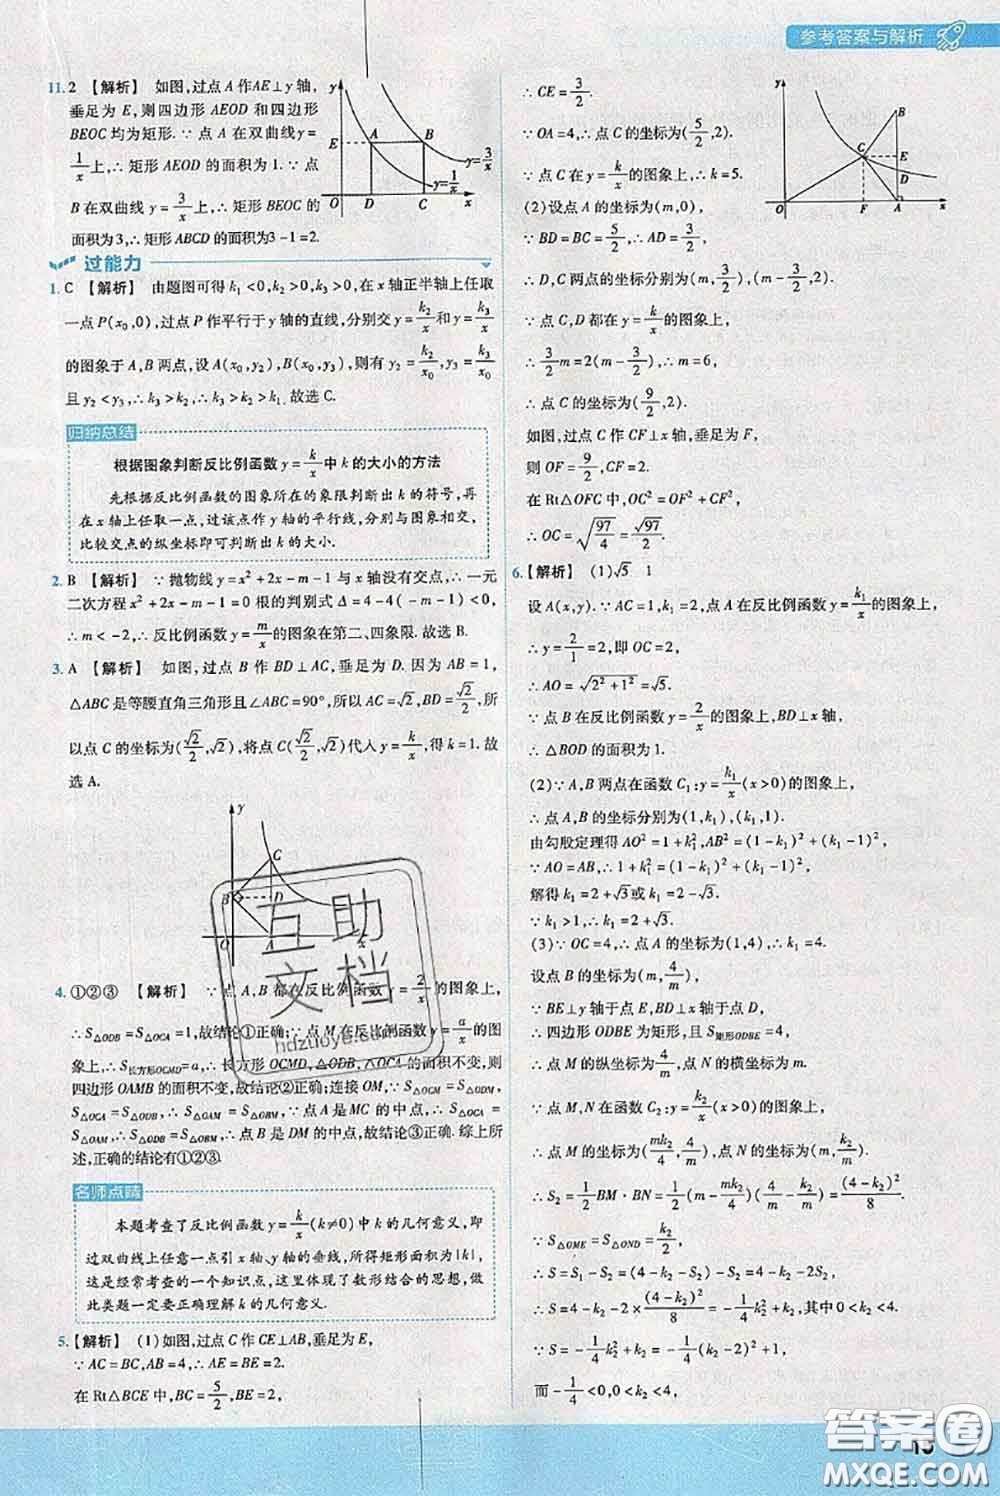 参考答案与解析
11. 2 【解析】 如图,过点A作AE⊥y轴,
垂足为E,则四边形AEOD和四边形
BEOC均为矩形.∵点A在双曲线y=
1/x上,∴矩形AEOD的面积为1.∵点
B在双曲线y=3/x上,∴矩形BEOC的
面积为3,∴矩形ABCD的面积为3-1=2.
y E A B y=3/x y=1/x O D C x
过能力
1. C 【解析】 由题图可得k₁<0,k₂>0,k₃>0,在x轴正半轴上任取
一点P(x₀,0),过点P作平行于y轴的直线,分别交y=k₂/x和y=k₃/x
的图象于A,B两点,设A(x₀,y₂),B(x₀,y₃),则有y₂=k₂/x₀,y₃=k₃/x₀,
且y₂<y₃,∴k₃>k₂,∴k₃>k₂>k₁.故选C.
归纳总结
根据图象判断反比例函数y=k/x中k的大小的方法
先根据反比例函数的图象所在的象限判断出k的符号,再
在x轴上任取一点,过该点作y轴的平行线,分别与图象相交,
比较交点的纵坐标即可判断出k的大小.
2. B 【解析】 ∵抛物线y=x²+2x-m-1与x轴没有交点,∴一元
二次方程x²+2x-m-1=0根的判别式Δ=4-4(-m-1)<0,
∴m<-2,∴反比例函数y=m/x的图象在第二、四象限.故选B.
3. A 【解析】 如图,过点B作BD⊥AC,垂足为D.因为AB=1,
△ABC是等腰直角三角形且∠ABC=90°,所以AC=√2,BD=√2/2,所
以点C的坐标为(√2/2,√2),将点C(√2/2,√2)代入y=k/x,得k=1.故
选A.
y C B D O A x
4. ①②③ 【解析】 ∵点A,B都在反比例函数y=2/x的图象上,
∴S△ODB=S△OCA=1,故结论①正确;∵点M在反比例函数y=a/x的图
象上,∴S长方形OCMD=a,∴长方形OCMD,△ODB,△OCA的面积不变,则
四边形OAMB的面积不变,故结论②正确;连接OM,∵S△OCM=S△ODM,
S△OCA=S△ODB,∴S△OAM=S△OBM,∵点A是MC的中点,∴S△OCA
=S△OAM,∴S△ODB=S△OBM,∴点B是DM的中点,故结论③正确.综上所
述,正确的结论有①②③.
名师点睛
本题考查了反比例函数y=k/x(k≠0)中k的几何意义,即
过双曲线上任意一点引x轴、y轴的垂线,所得矩形面积为|k|,
这是经常考查的一个知识点,这里体现了数形结合的思想,做
此类题一定要正确理解k的几何意义.
5. 【解析】 (1)如图,过点C作CE⊥AB,垂足为E,
∵AC=BC,AB=4,∴AE=BE=2.
在Rt△BCE中,BC=5/2,BE=2,
∴CE=3/2.
∵OA=4,∴点C的坐标为(5/2,2).
∵点C在y=k/x的图象上,∴k=5.
(2)设点A的坐标为(m,0),
∵BD=BC=5/2,∴AD=3/2,
∴D,C两点的坐标分别为(m,3/2),(m-3/2,2).
∵点C,D都在y=k/x的图象上,
∴3/2m=2(m-3/2),∴m=6,
∴点C的坐标为(9/2,2).
如图,过点C作CF⊥x轴,垂足为F,
则OF=9/2,CF=2.
在Rt△OFC中,OC²=OF²+CF²,
∴OC=√(97/4)=√97/2.
y B C E D O F A x
6. 【解析】 (1)√5 1
设A(x,y).∵AC=1,k₁=2,点A在反比例函数y=k₁/x的图象上,
∴y=2/1=2,即OC=2,
∴AO=√(2²+1²)=√5.
∵点B在反比例函数y=2/x的图象上,BD⊥x轴,
∴△BOD的面积为1.
(2)∵A,B两点在函数C₁:y=k₁/x(x>0)的图象上,
∴点A,B的坐标分别为(1,k₁),(k₁,1).
由勾股定理得AO²=1+k₁²,AB²=(1-k₁)²+(1-k₁)²,
∵AO=AB,∴1+k₁²=(1-k₁)²+(1-k₁)²,
解得k₁=2+√3或k₁=2-√3.
∵k₁>1,∴k₁=2+√3.
(3)∵OC=4,∴点A的坐标为(1,4),∴k₁=4.
设点B的坐标为(m,4/m),
∵BE⊥y轴于点E,BD⊥x轴于点D,
∴四边形ODBE为矩形,且S矩形ODBE=4,
点M的纵坐标为4/m,点N的横坐标为m.
∵点M,N在函数C₂:y=k₂/x(x>0)的图象上,
∴点M的坐标为(mk₂/4,4/m),点N的坐标为(m,k₂/m),
∴S₂=1/2BM·BN=1/2(m-mk₂/4)(4/m-k₂/m)=(4-k₂)²/8.
∵S△OME=S△OND=k₂/2,
∴S=S₁-S₂=(4-k₂/2-k₂/2-S₂)-S₂=4-k₂-2S₂,
∴S=4-k₂-2×(4-k₂)²/8=-1/4k₂²+k₂,其中0<k₂<4.
∵S=-1/4k₂²+k₂=-1/4(k₂-2)²+1,
而-1/4<0,0<k₂<4,
互助
文档
hdzuoye.com
答案圈
MXQE.COM